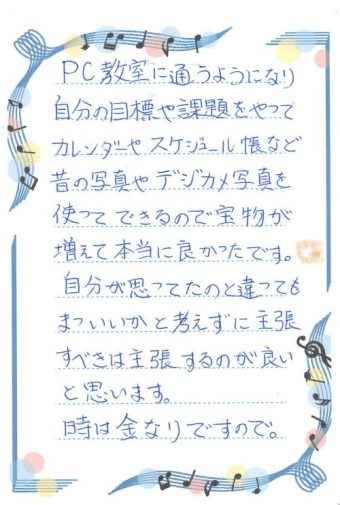 PC教室に通うようになり
自分の目標や課題をやって
カレンダーや スケジュール帳など
昔の写真や デジカメ写真を
使って できるので宝物が
増えて本当に良かったです。
自分が思ってたのと違っても
まっいいかと考えずに主張
すべきは主張するのが良い
と思います。
時は金なりですので。